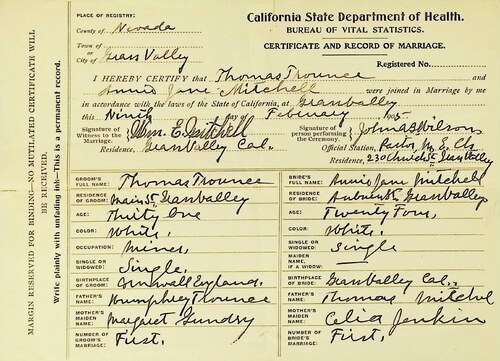 MARGIN RESERVED FOR BINDING—NO MUTILATED CERTIFICATE WILL
BE RECEIVED.
Write plainly with unfading ink—This is a permanent record.
PLACE OF REGISTRY:
County of Nevada
Town of
or
City of Grass Valley
California State Department of Health.
BUREAU OF VITAL STATISTICS.
CERTIFICATE AND RECORD OF MARRIAGE.
Registered No.
I HEREBY CERTIFY that Thomas Trounce and
Annie Jane Mitchell were joined in Marriage by me
in accordance with the laws of the State of California, at Grass Valley
this Ninth day of February 1905
Signature of Witness to the Marriage, Wm. E.
Residence, Grass Valley Cal.
Signature of person performing the Ceremony. John Wilson
Official Station, Pastor M. E. Ch
Residence, 230 Church St Grass Valley
GROOM'S FULL NAME: Thomas Trounce
RESIDENCE OF GROOM: Main St Grass Valley
AGE: Thirty One
COLOR: White.
OCCUPATION: Miner
SINGLE OR WIDOWED: Single.
BIRTHPLACE OF GROOM: Cornwall England.
FATHER'S NAME: Humphrey Trounce
MOTHER'S MAIDEN NAME: Margaret Gundry
NUMBER OF GROOM'S MARRIAGE: First.
BRIDE'S FULL NAME: Annie Jane Mitchell
RESIDENCE OF BRIDE: Auburn St Grass Valley
AGE: Twenty Four,
COLOR: White.
SINGLE OR WIDOWED: Single
MAIDEN NAME, IF A WIDOW:
BIRTHPLACE OF BRIDE: Grass Valley Cal.
FATHER'S NAME: Thomas Mitchel
MOTHER'S MAIDEN NAME: Celia Jenkin
NUMBER OF BRIDE'S MARRIAGE: First.